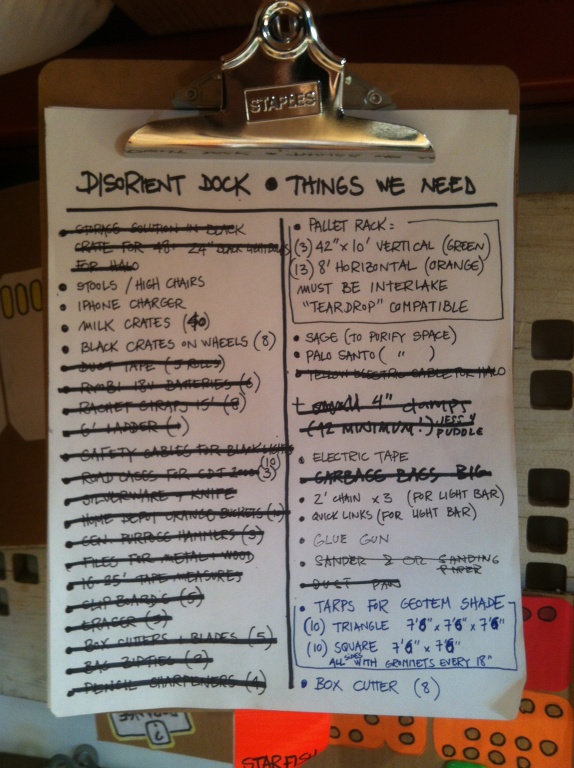 STAPLES
DISORIENT DOCK • THINGS WE NEED
STORAGE SOLUTION IN BLACK
CRATE FOR 48+ 24" BLACK LIGHT
FOR HALO
• STOOLS / HIGH CHAIRS
• IPHONE CHARGER
• MILK CRATES (40)
• BLACK CRATES ON WHEELS (8)
• DUCT TAPE (5 ROLLS)
• RYOBI 18V BATTERIES (6)
• RACHET STRAPS 15' (8)
• 6' LADDER
• SAFETY CABLES FOR BLACK LIGHTS (10)
• ROAD CASES FOR CDJ 2000 (3)
• SILVERWARE + KNIFE
• HOME DEPOT ORANGE BUCKETS
• GEN. PURPOSE HAMMERS (3)
• FILES FOR METAL + WOOD
• 16-25' TAPE MEASURES
• CLIPBOARDS (5)
• ERASER (3)
• BOX CUTTERS + BLADES (5)
• BAG ZIPTIES (2)
• PENCIL SHARPENERS (4)
• PALLET RACK:
(3) 42" x 10' VERTICAL (GREEN)
(13) 8' HORIZONTAL (ORANGE)
MUST BE INTERLAKE
"TEARDROP" COMPATIBLE
• SAGE (TO PURIFY SPACE)
• PALO SANTO ( " )
• YELLOW ELECTRO CABLE FOR HALO
+ small 4" clamps
(12 MINIMUM!) JESS Y PUDDLE
• ELECTRIC TAPE
• GARBAGE BAGS BIG
• 2' CHAIN x 3 (FOR LIGHT BAR)
• QUICK LINKS (FOR LIGHT BAR)
• GLUE GUN
• SANDER & OR SANDING PAPER
• DUST PAN
• TARPS FOR GEOTEM SHADE
(10) TRIANGLE 7'6" x 7'6" x 7'6"
(10) SQUARE 7'6" x 7'6"
ALL SIDES WITH GROMMETS EVERY 18"
• BOX CUTTER (8)
STARFISH